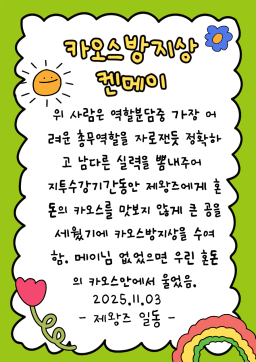 카오스방지상
켄메이
위 사람은 역할분담중 가장 어
려운 총무역할을 자로잰듯 정확하
고 남다른 실력을 뽐내주어
지투수강기간동안 제왕즈에게 혼
돈의 카오스를 맛보지 않게 큰 공을
세웠기에 카오스방지상을 수여
함. 메이님 없었으면 우린 혼돈
의 카오스안에서 울었음.
2025.11.03
- 제왕즈 일동 -